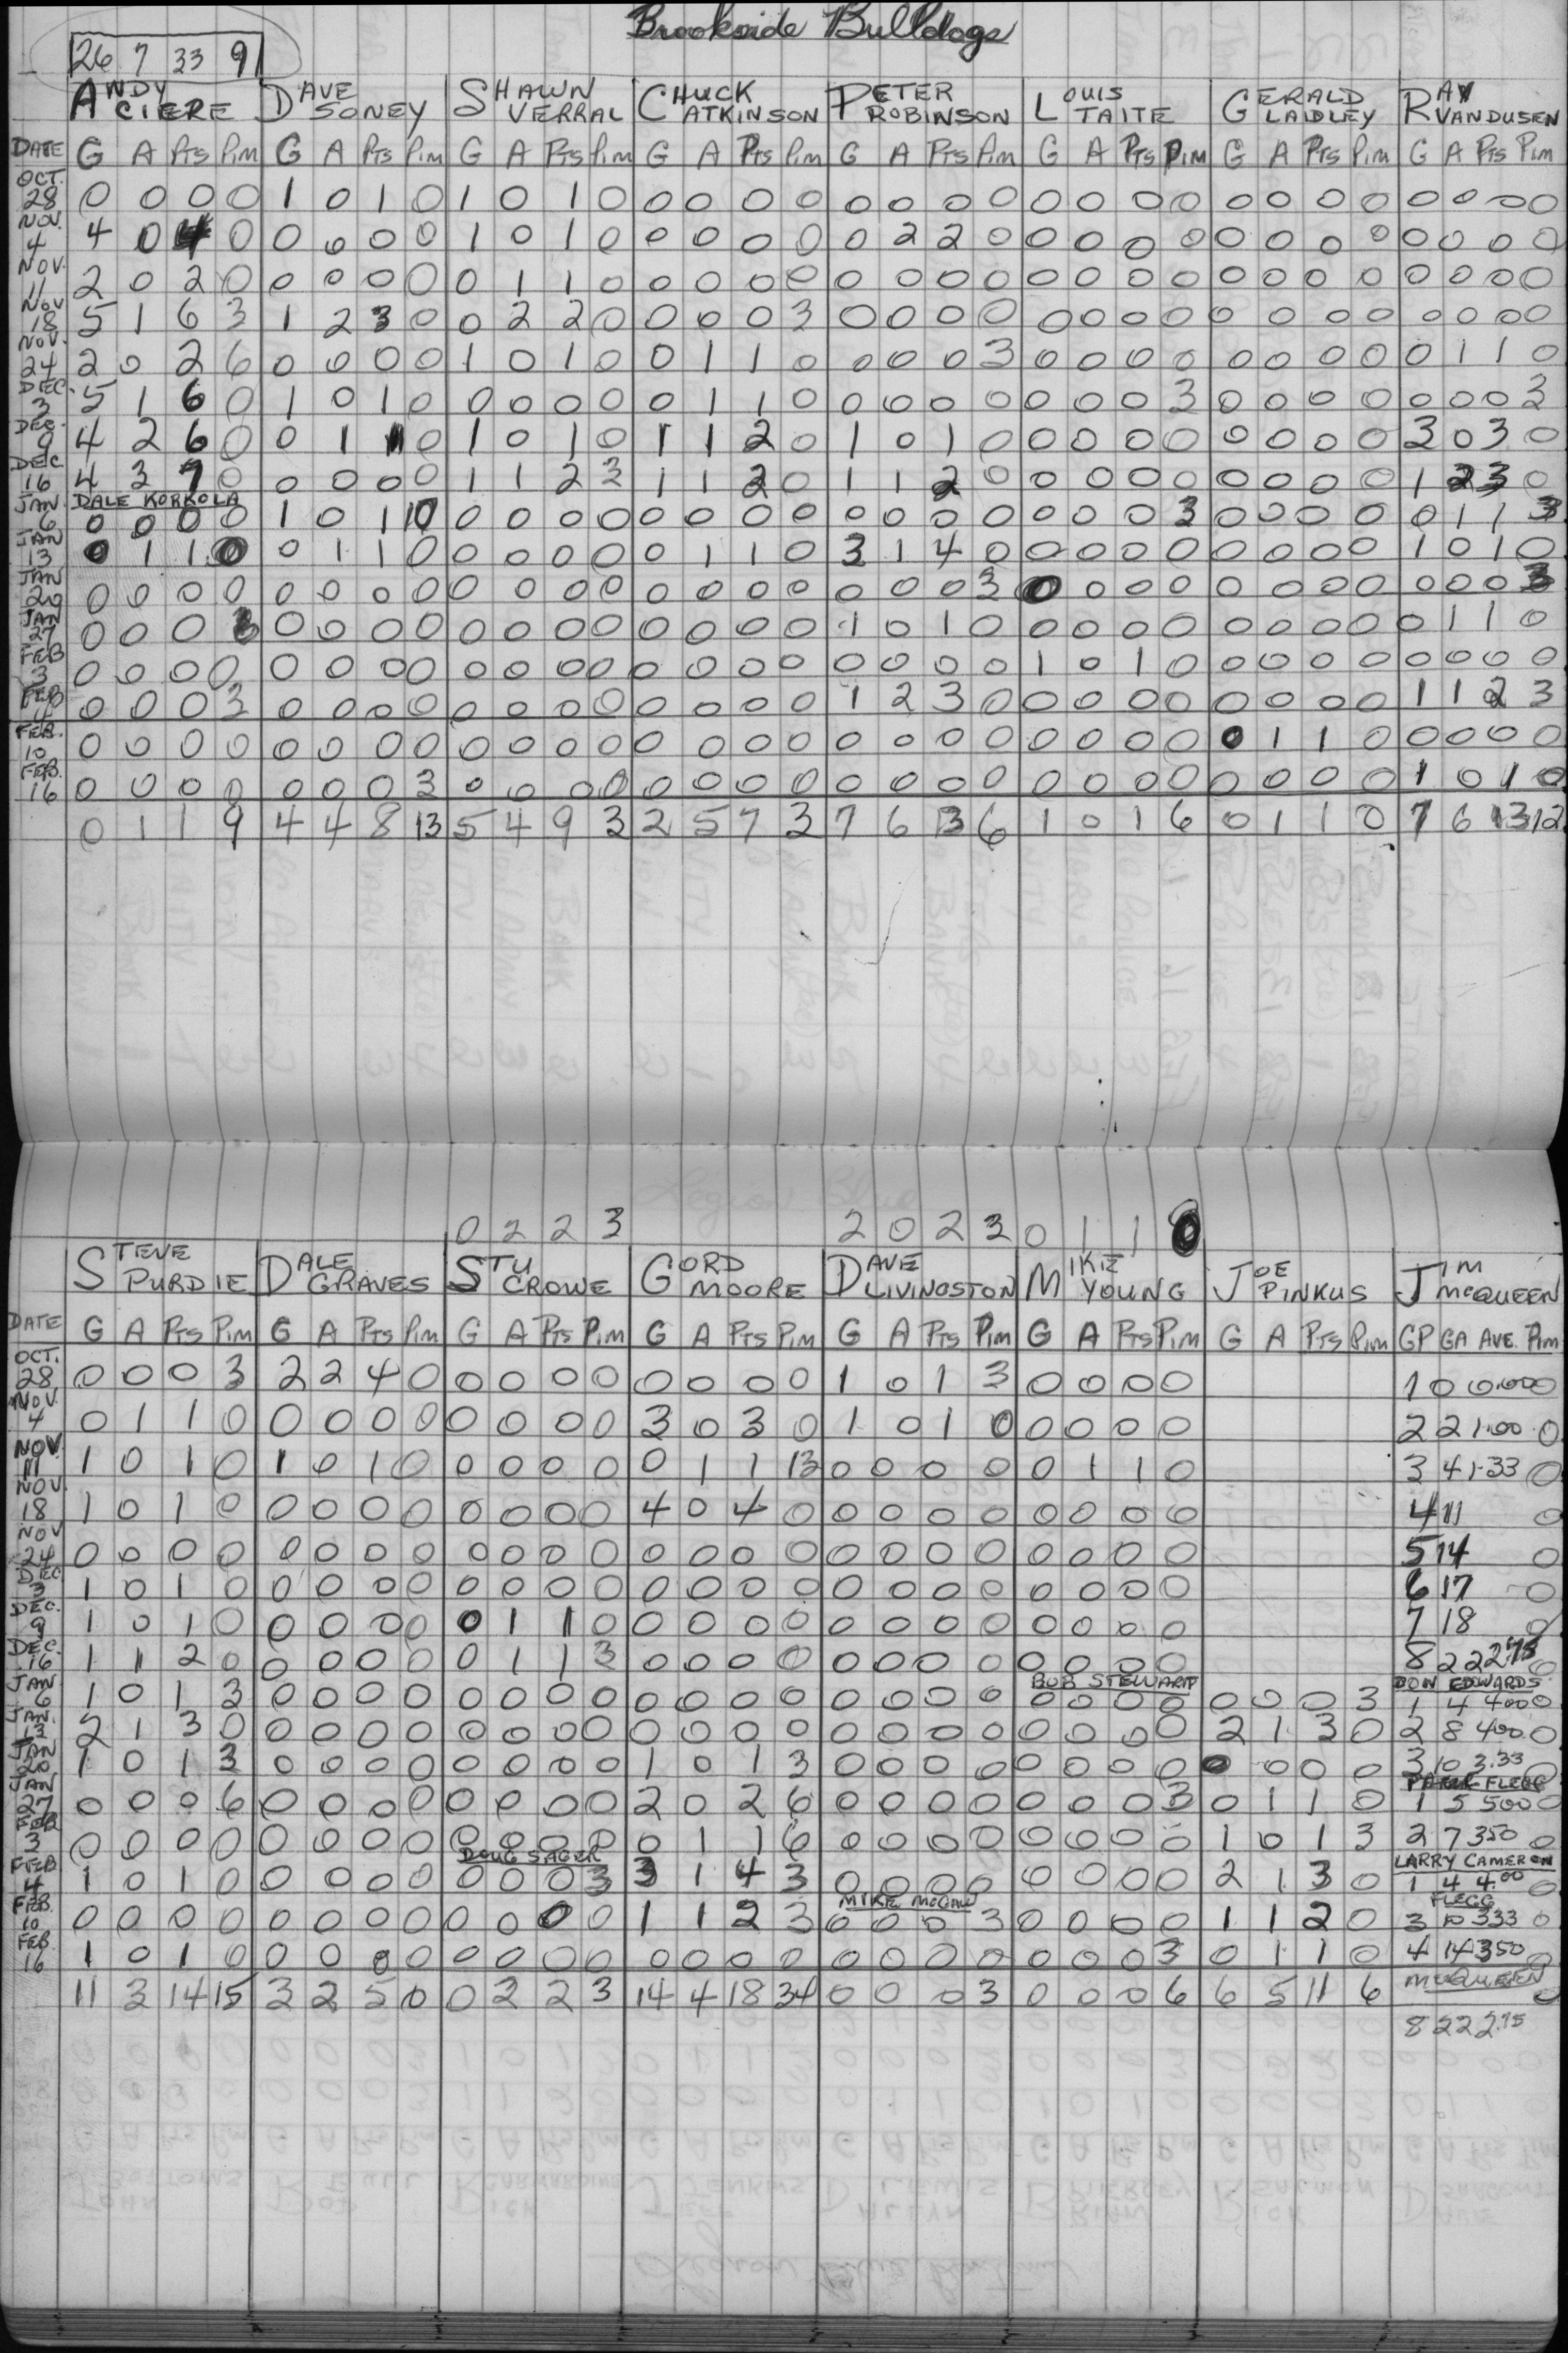 Brookside Bulldogs
26 7 33 9
ANDY CIERE DAVE SONEY SHAWN VERRAL CHUCK ATKINSON PETER ROBINSON LOUIS TAITE GERALD LAIDLEY RAY VANDUSEN
DATE G A Pts Pim G A Pts Pim G A Pts Pim G A Pts Pim G A Pts Pim G A Pts Pim G A Pts Pim G A Pts Pim
OCT. 28 0 0 0 0 1 0 1 0 1 0 1 0 0 0 0 0 0 0 0 0 0 0 0 0 0 0 0 0 0 0 0 0
NOV. 4 4 0 4 0 0 0 0 0 1 0 1 0 0 0 0 0 0 2 2 0 0 0 0 0 0 0 0 0 0 0 0 0
NOV. 11 2 0 2 0 0 0 0 0 0 1 1 0 0 0 0 0 0 0 0 0 0 0 0 0 0 0 0 0 0 0 0 0
NOV 18 5 1 6 3 1 2 3 0 0 2 2 0 0 0 0 3 0 0 0 0 0 0 0 0 0 0 0 0 0 0 0 0
NOV. 24 2 0 2 6 0 0 0 0 1 0 1 0 0 1 1 0 0 0 0 3 0 0 0 0 0 0 0 0 0 1 1 0
DEC. 3 5 1 6 0 1 0 1 0 0 0 0 0 0 1 1 0 0 0 0 0 0 0 0 3 0 0 0 0 0 0 0 3
DEC. 9 4 2 6 0 0 1 1 0 1 0 1 0 1 1 2 0 1 0 1 0 0 0 0 0 0 0 0 0 3 0 3 0
DEC 16 4 3 7 0 0 0 0 0 1 1 2 3 1 1 2 0 1 1 2 0 0 0 0 0 0 0 0 0 1 2 3 0
DALE KORKOLA
JAN. 6 0 0 0 0 1 0 1 10 0 0 0 0 0 0 0 0 0 0 0 0 0 0 0 3 0 0 0 0 0 1 1 3
JAN 13 0 1 1 0 0 1 1 0 0 0 0 0 0 1 1 0 3 1 4 0 0 0 0 0 0 0 0 0 1 0 1 0
JAN 20 0 0 0 0 0 0 0 0 0 0 0 0 0 0 0 0 0 0 0 3 0 0 0 0 0 0 0 0 0 0 0 3
JAN 27 0 0 0 3 0 0 0 0 0 0 0 0 0 0 0 0 1 0 1 0 0 0 0 0 0 0 0 0 0 1 1 0
FEB 3 0 0 0 0 0 0 0 0 0 0 0 0 0 0 0 0 0 0 0 0 1 0 1 0 0 0 0 0 0 0 0 0
FEB 4 0 0 0 3 0 0 0 0 0 0 0 0 0 0 0 0 1 2 3 0 0 0 0 0 0 0 0 0 1 1 2 3
FEB. 10 0 0 0 0 0 0 0 0 0 0 0 0 0 0 0 0 0 0 0 0 0 0 0 0 0 1 1 0 0 0 0 0
FEB. 16 0 0 0 0 0 0 0 3 0 0 0 0 0 0 0 0 0 0 0 0 0 0 0 0 0 0 0 0 1 0 1 0
0 1 1 9 4 4 8 13 5 4 9 3 2 5 7 3 7 6 13 6 1 0 1 6 0 1 1 0 7 6 13 12
0 2 2 3 2 0 2 3 0 1 1 0
STEVE PURDIE DALE GRAVES STU CROWE GORD MOORE DAVE LIVINGSTON MIKE YOUNG JOE PINKUS JIM McQUEEN
DATE G A Pts Pim G A Pts Pim G A Pts Pim G A Pts Pim G A Pts Pim G A Pts Pim G A Pts Pim GP GA AVE. Pim
OCT. 28 0 0 0 3 2 2 4 0 0 0 0 0 0 0 0 0 1 0 1 3 0 0 0 0 1 0 0.00 0
NOV. 4 0 1 1 0 0 0 0 0 0 0 0 0 3 0 3 0 1 0 1 0 0 0 0 0 2 2 1.00 0
NOV. 11 1 0 1 0 1 0 1 0 0 0 0 0 0 1 1 13 0 0 0 0 0 1 1 0 3 4 1.33 0
NOV. 18 1 0 1 0 0 0 0 0 0 0 0 0 4 0 4 0 0 0 0 0 0 0 0 0 4 11 0
NOV 24 0 0 0 0 0 0 0 0 0 0 0 0 0 0 0 0 0 0 0 0 0 0 0 0 5 14 0
DEC 3 1 0 1 0 0 0 0 0 0 0 0 0 0 0 0 0 0 0 0 0 0 0 0 0 6 17 0
DEC. 9 1 0 1 0 0 0 0 0 0 1 1 0 0 0 0 0 0 0 0 0 0 0 0 0 7 18 0
DEC. 16 1 1 2 0 0 0 0 0 0 1 1 3 0 0 0 0 0 0 0 0 0 0 0 0 8 22 2.75 0
BOB STEWART DON EDWARDS
JAN 6 1 0 1 3 0 0 0 0 0 0 0 0 0 0 0 0 0 0 0 0 0 0 0 0 0 0 0 3 1 4 400 0
JAN. 13 2 1 3 0 0 0 0 0 0 0 0 0 0 0 0 0 0 0 0 0 0 0 0 0 2 1 3 0 2 8 400 0
JAN 20 1 0 1 3 0 0 0 0 0 0 0 0 1 0 1 3 0 0 0 0 0 0 0 0 0 0 0 0 3 10 3.33 0
FLEGG
JAN 27 0 0 0 6 0 0 0 0 0 0 0 0 2 0 2 6 0 0 0 0 0 0 0 3 0 1 1 0 1 5 500 0
FEB 3 0 0 0 0 0 0 0 0 0 0 0 0 0 1 1 6 0 0 0 0 0 0 0 0 1 0 1 3 2 7 350 0
DOUG SAGER LARRY CAMERON
FEB 4 1 0 1 0 0 0 0 0 0 0 0 3 3 1 4 3 0 0 0 0 0 0 0 0 2 1 3 0 1 4 4.00 0
MIKE FLEGG
FEB. 10 0 0 0 0 0 0 0 0 0 0 0 0 1 1 2 3 0 0 0 3 0 0 0 0 1 1 2 0 3 10 333 0
FEB 16 1 0 1 0 0 0 0 0 0 0 0 0 0 0 0 0 0 0 0 0 0 0 0 3 0 1 1 0 4 14 350 0
11 3 14 15 3 2 5 0 0 2 2 3 14 4 18 34 0 0 0 3 0 0 0 6 6 5 11 6 McQUEEN 0
8 22 2.75